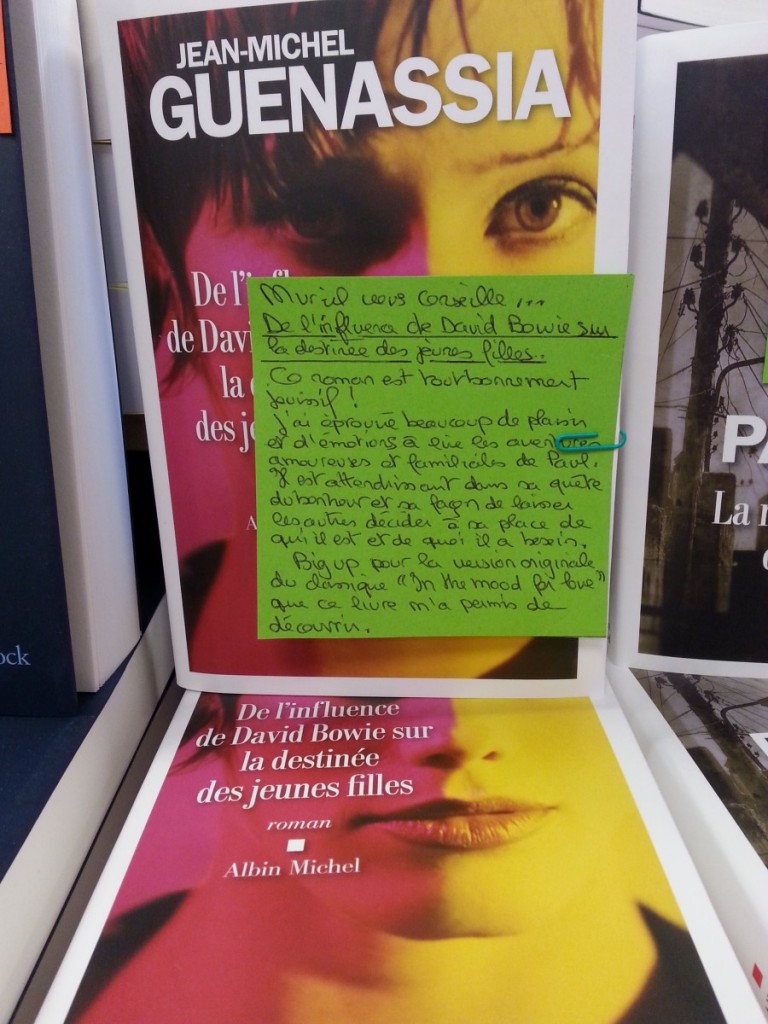 JEAN-MICHEL
GUENASSIA
De l'infl
de Davi
la d
des je
A
Muriel vous conseille...
De l'influence de David Bowie sur
la destinée des jeunes filles.
Ce roman est tout bonnement
jouissif !
J'ai éprouvé beaucoup de plaisir
et d'émotions à lire les aventures
amoureuses et familiales de Paul.
Il est attendrissant dans sa quête
du bonheur et sa façon de laisser
les autres décider à sa place de
qui il est et de quoi il a besoin.
Big up pour la version originale
du classique "In the mood for love"
que ce livre m'a permis de
découvrir.
De l'influence
de David Bowie sur
la destinée
des jeunes filles
roman
Albin Michel
ock
PA
La